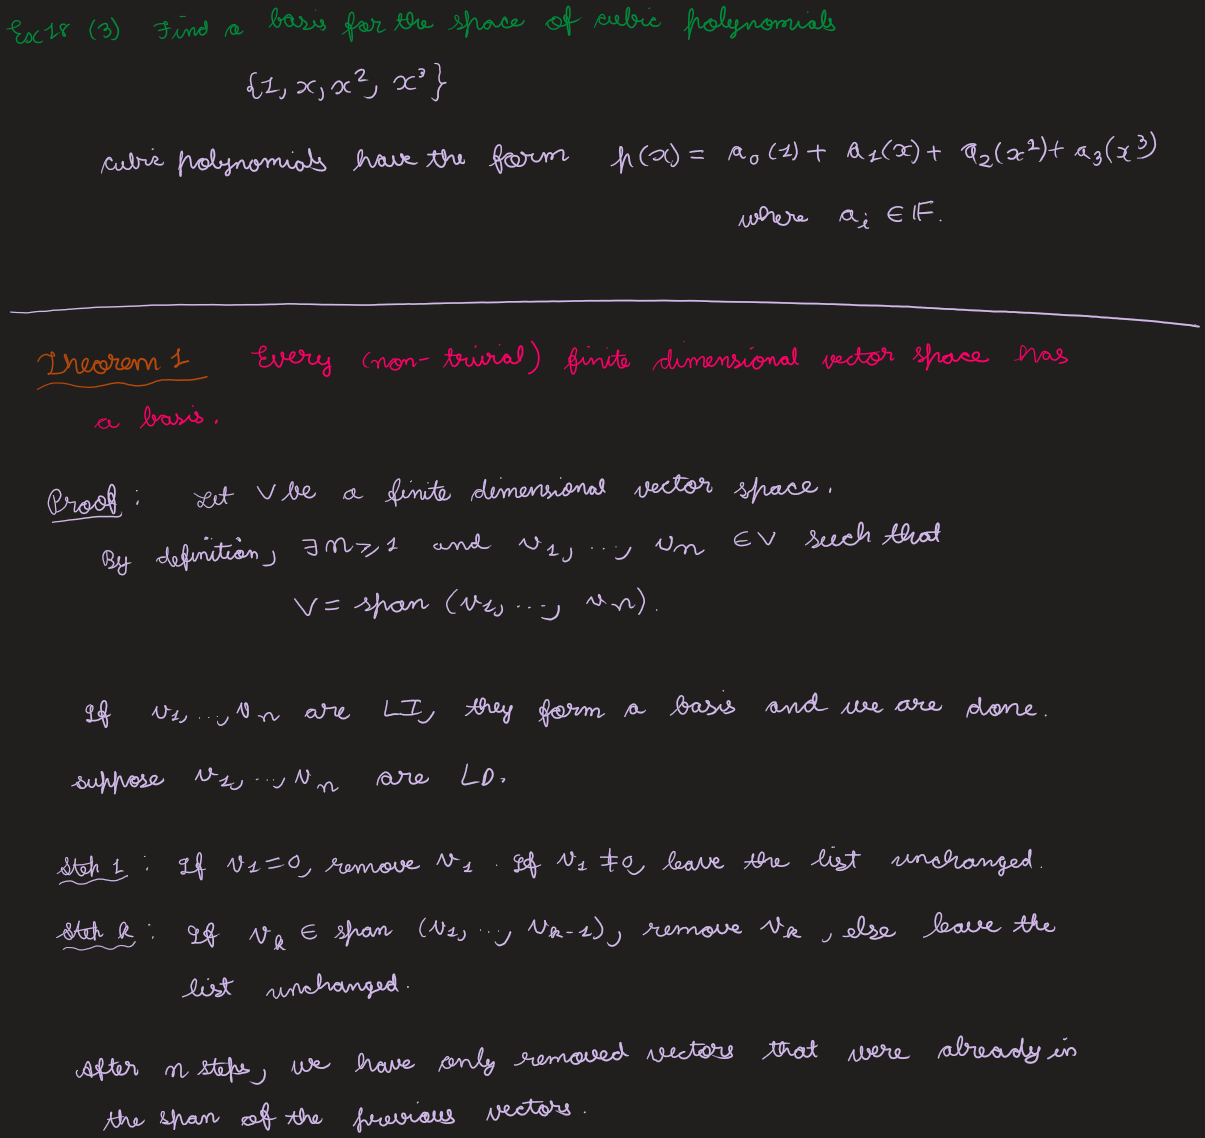 Ex 18 (3) Find a basis for the space of cubic polynomials
{1, x, x², x³}
cubic polynomials have the form p(x) = a₀(1) + a₁(x) + a₂(x²) + a₃(x³)
where aᵢ ∈ 𝔽.
Theorem 1 Every (non-trivial) finite dimensional vector space has
a basis.
Proof: Let V be a finite dimensional vector space.
By definition, ∃ n ≥ 1 and v₁, ..., vₙ ∈ V such that
V = span (v₁, ..., vₙ).
If v₁, ..., vₙ are LI, they form a basis and we are done.
suppose v₁, ..., vₙ are LD.
Step 1: If v₁ = 0, remove v₁. If v₁ ≠ 0, leave the list unchanged.
Step k: If vₖ ∈ span (v₁, ..., vₖ₋₁), remove vₖ, else leave the
list unchanged.
After n steps, we have only removed vectors that were already in
the span of the previous vectors.